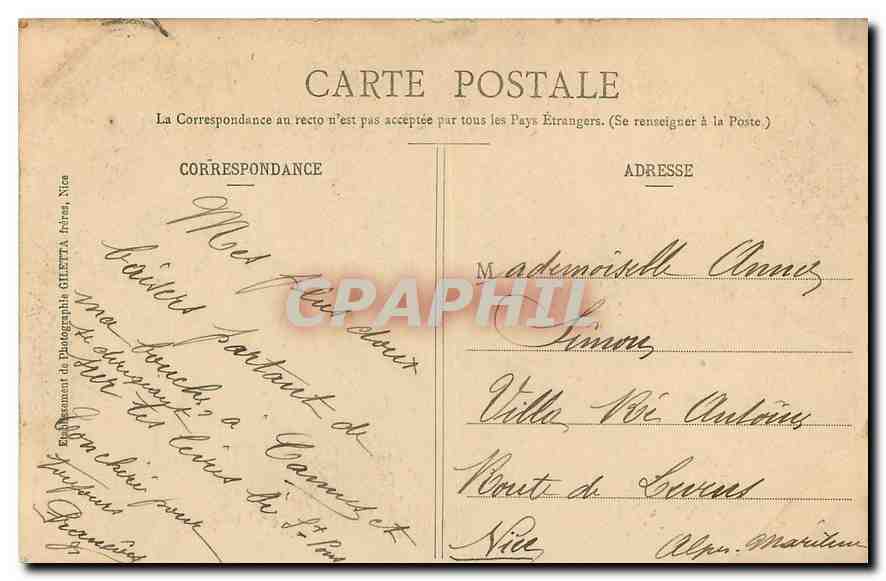 CARTE POSTALE
La Correspondance au recto n'est pas acceptée par tous les Pays Étrangers. (Se renseigner à la Poste.)
CORRESPONDANCE
Mes plus doux
baisers partant de
ma bouche, à Cannes et
se dirigeant
sur tes lèvres à St Pons
Ton chéri pour
toujours
François
Etablissement de Photographie GILETTA frères, Nice
ADRESSE
Mademoiselle Anna
Simon
Villa Antoine
Route de Levens
Nice Alpes-Maritime
CPAPHIL